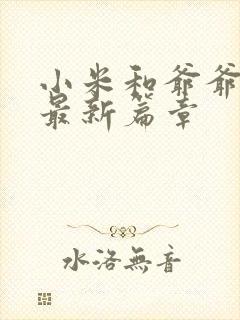 小米和爷爷
最新篇章
水洛無音